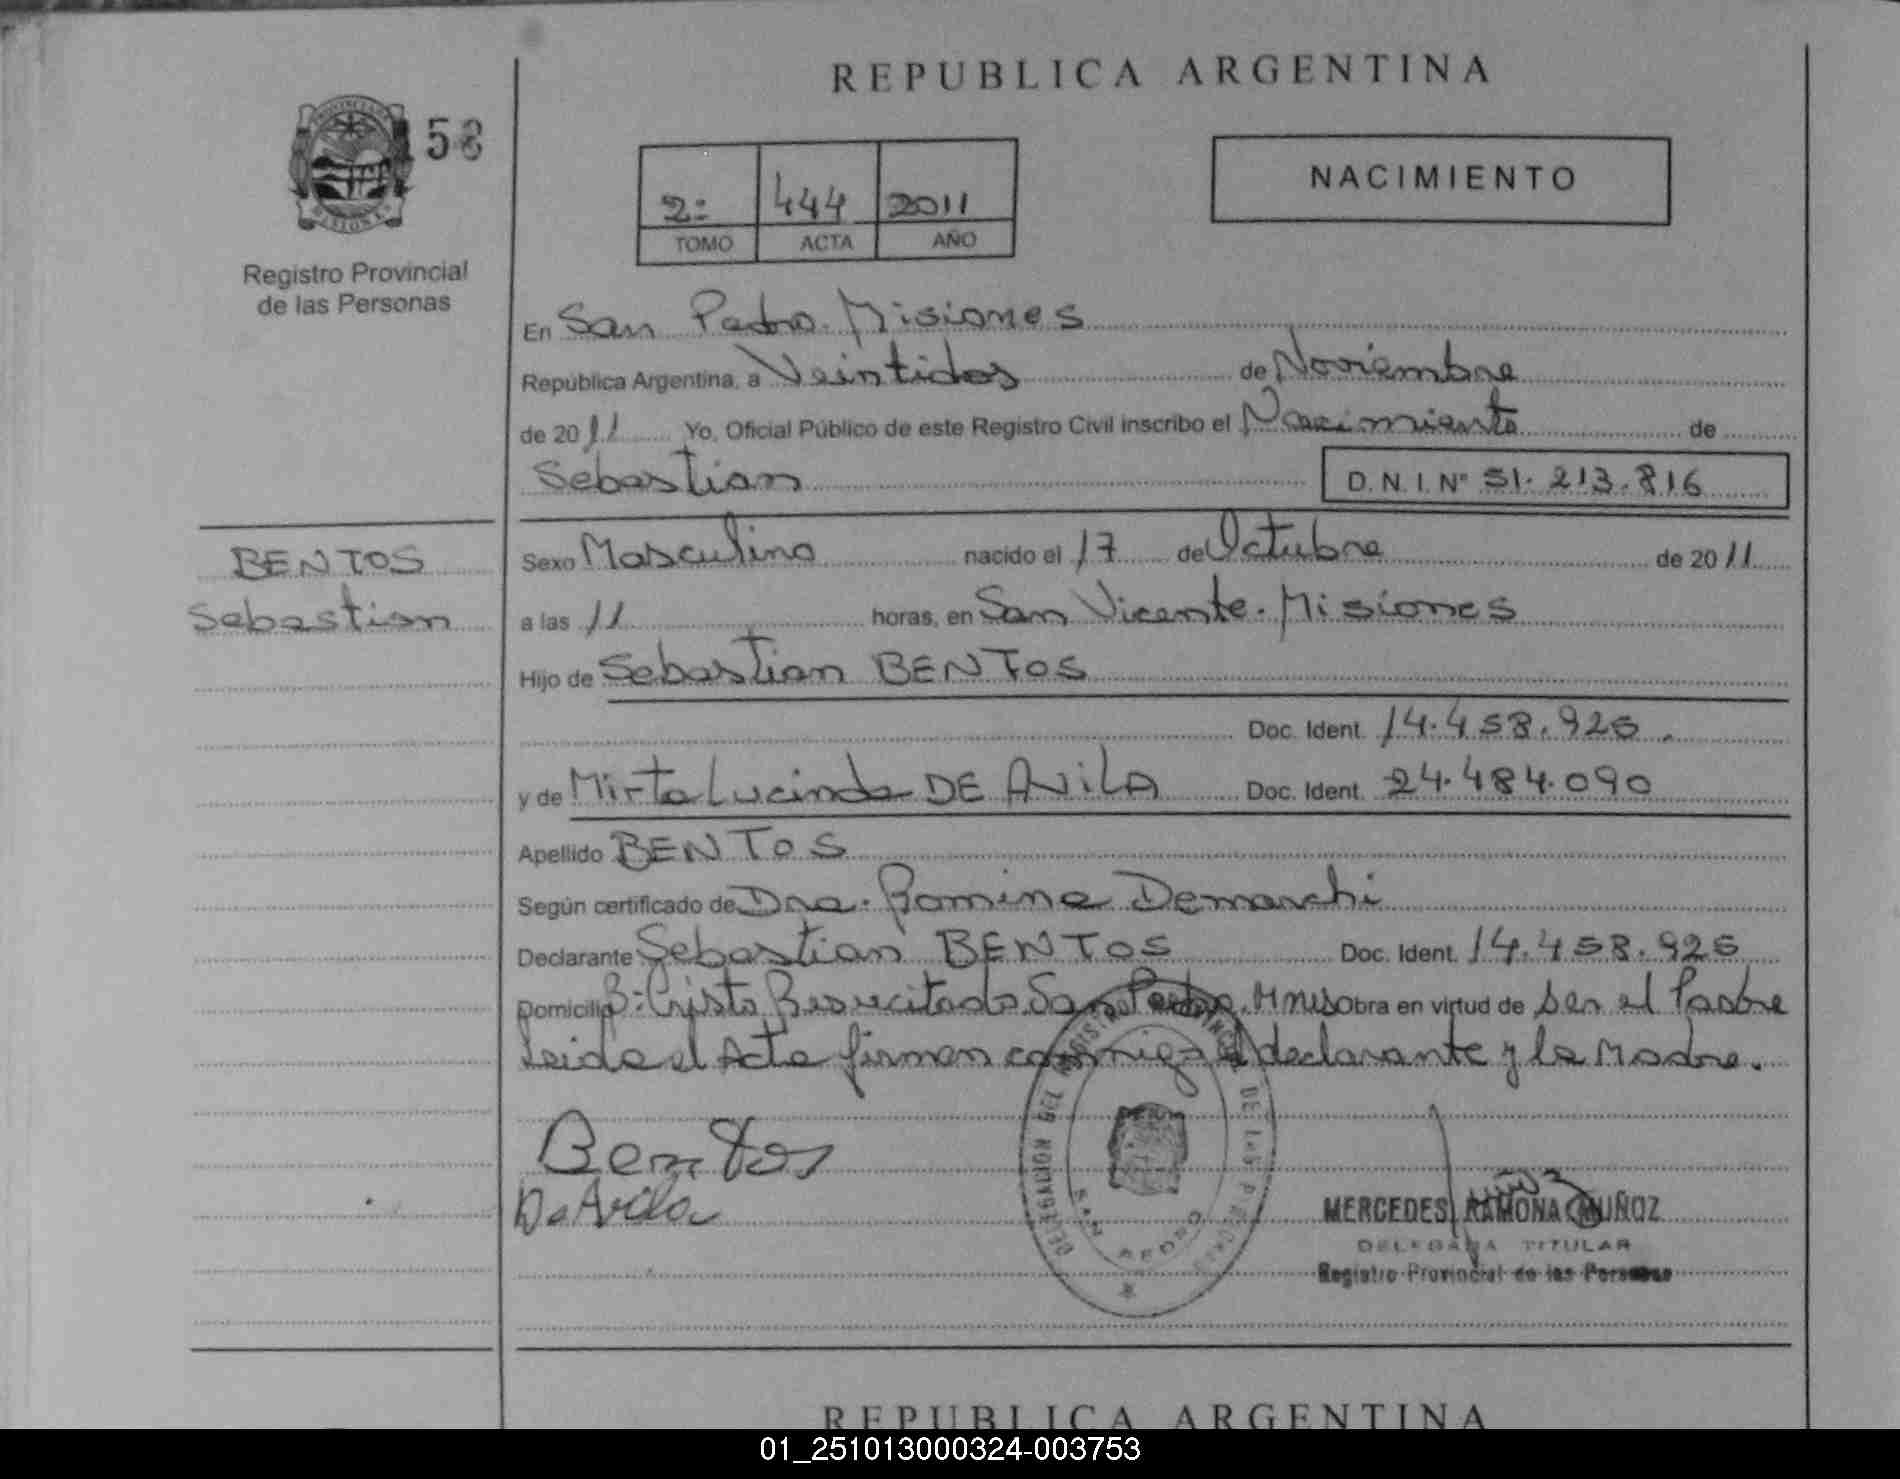 REPUBLICA ARGENTINA
58
2º 444 2011
TOMO ACTA AÑO
NACIMIENTO
Registro Provincial
de las Personas
En San Pedro. Misiones
República Argentina, a Veintidos de Noviembre
de 2011 Yo, Oficial Público de este Registro Civil inscribo el Nacimiento de
Sebastian D.N.I. Nº 51.213.816
BENTOS
Sebastian
Sexo Masculino nacido el 17 de Octubre de 2011
a las 11 horas, en San Vicente. Misiones
Hijo de Sebastian BENTOS
Doc. Ident. 14.458.925.
y de Mirta Lucinda DE AVILA Doc. Ident. 24.484.090
Apellido BENTOS
Según certificado de Dra. Romina Demarchi
Declarante Sebastian BENTOS Doc. Ident. 14.458.925
Domicilio Bº Cristo Resucitado San Pedro. Mnes Obra en virtud de ser el Padre
Leida el Acta firman conmigo el declarante y la Madre.
DELEGACION DEL REGISTRO PROVINCIAL DE LAS PERSONAS
SAN PEDRO
Bentos
De Avila
MERCEDES RAMONA MUÑOZ
DELEGADA TITULAR
Registro Provincial de las Personas
REPUBLICA ARGENTINA
01_251013000324-003753